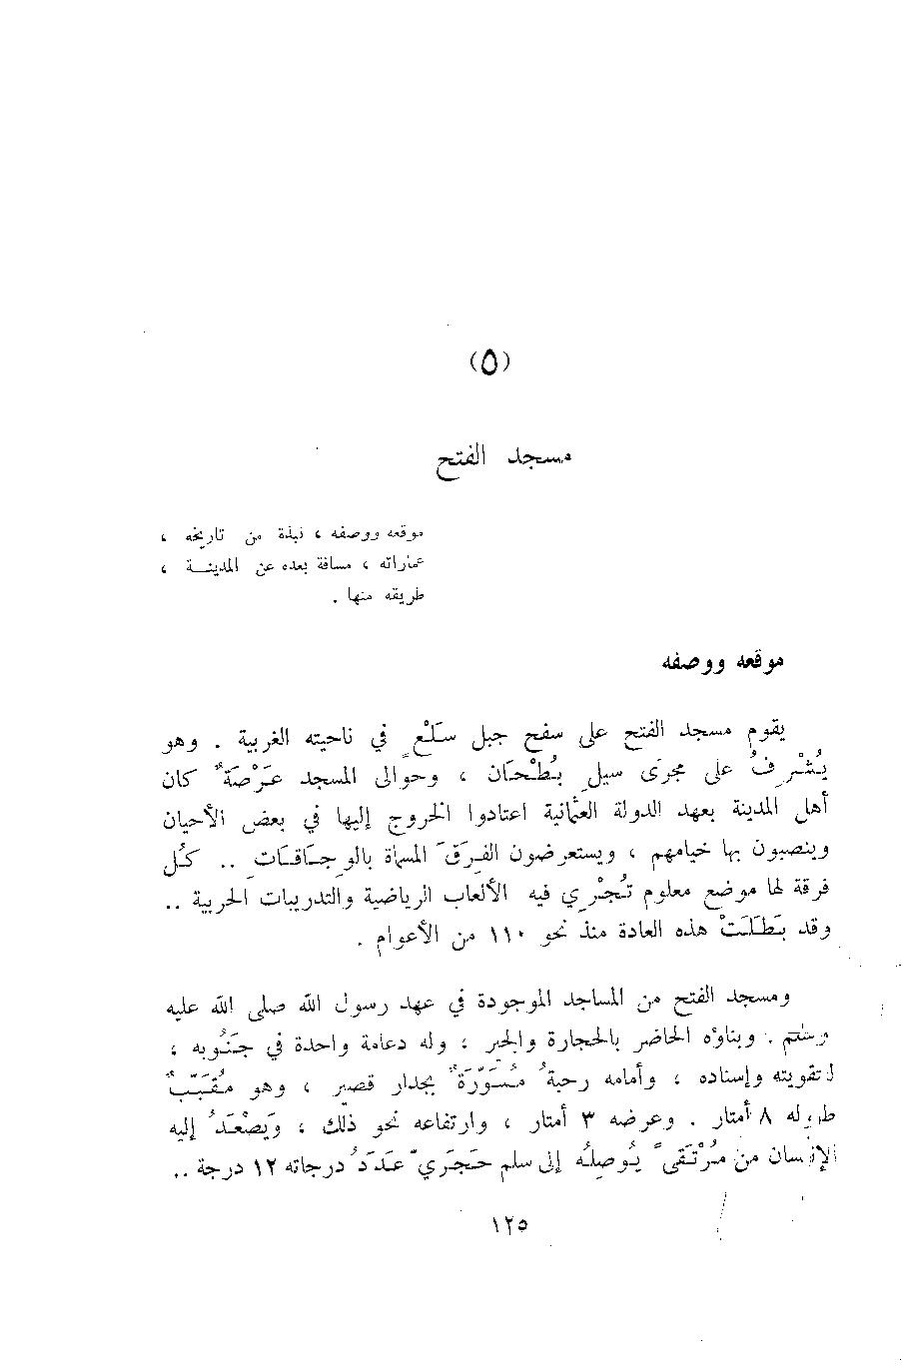 (٥)
مسجد الفتح
موقعه ووصفه ، نبذة من تاريخه ،
عماراته ، مسافة بعده عن المدينـــة ،
طريقه منها .
موقعه ووصفه
يقوم مسجد الفتح على سفح جبل سَلْعٍ في ناحيته الغربية . وهو
يُشْرِفُ على مجرَى سيلِ بُطْحَان ، وحوالى المسجد عَرْصَةٌ كان
أهل المدينة بعهد الدولة العثمانية اعتادوا الخروج إليها في بعض الأحيان
وينصبون بها خيامهم ، ويستعرضون الفِرَقَ المسماة بالوِجَاقَاتِ .. كُل
فرقة لها موضع معلوم تُجْرِي فيه الألعاب الرياضية والتدريبات الحربية ..
وقد بَطَلَتْ هذه العادة منذ نحو ١١٠ من الأعوام .
ومسجد الفتح من المساجد الموجودة في عهد رسول الله صلى الله عليه
وسلم . وبناؤه الحاضر بالحجارة والجير ، وله دعامة واحدة في جَنُوبه ،
لتقويته وإسناده ، وأمامه رحبةُ مُسَوّرَةٌ بجدار قصير ، وهو مُقَبَبٌ
طوله ٨ أمتار . وعرضه ٣ أمتار ، وارتفاعه نحو ذلك ، وَيَصْعَدُ إليه
الإنسان من مُرْتَقىً يُوصِلُه إلى سلم حَجَريّ عَدَدُ درجاته ١٢ درجة ..
١٢٥